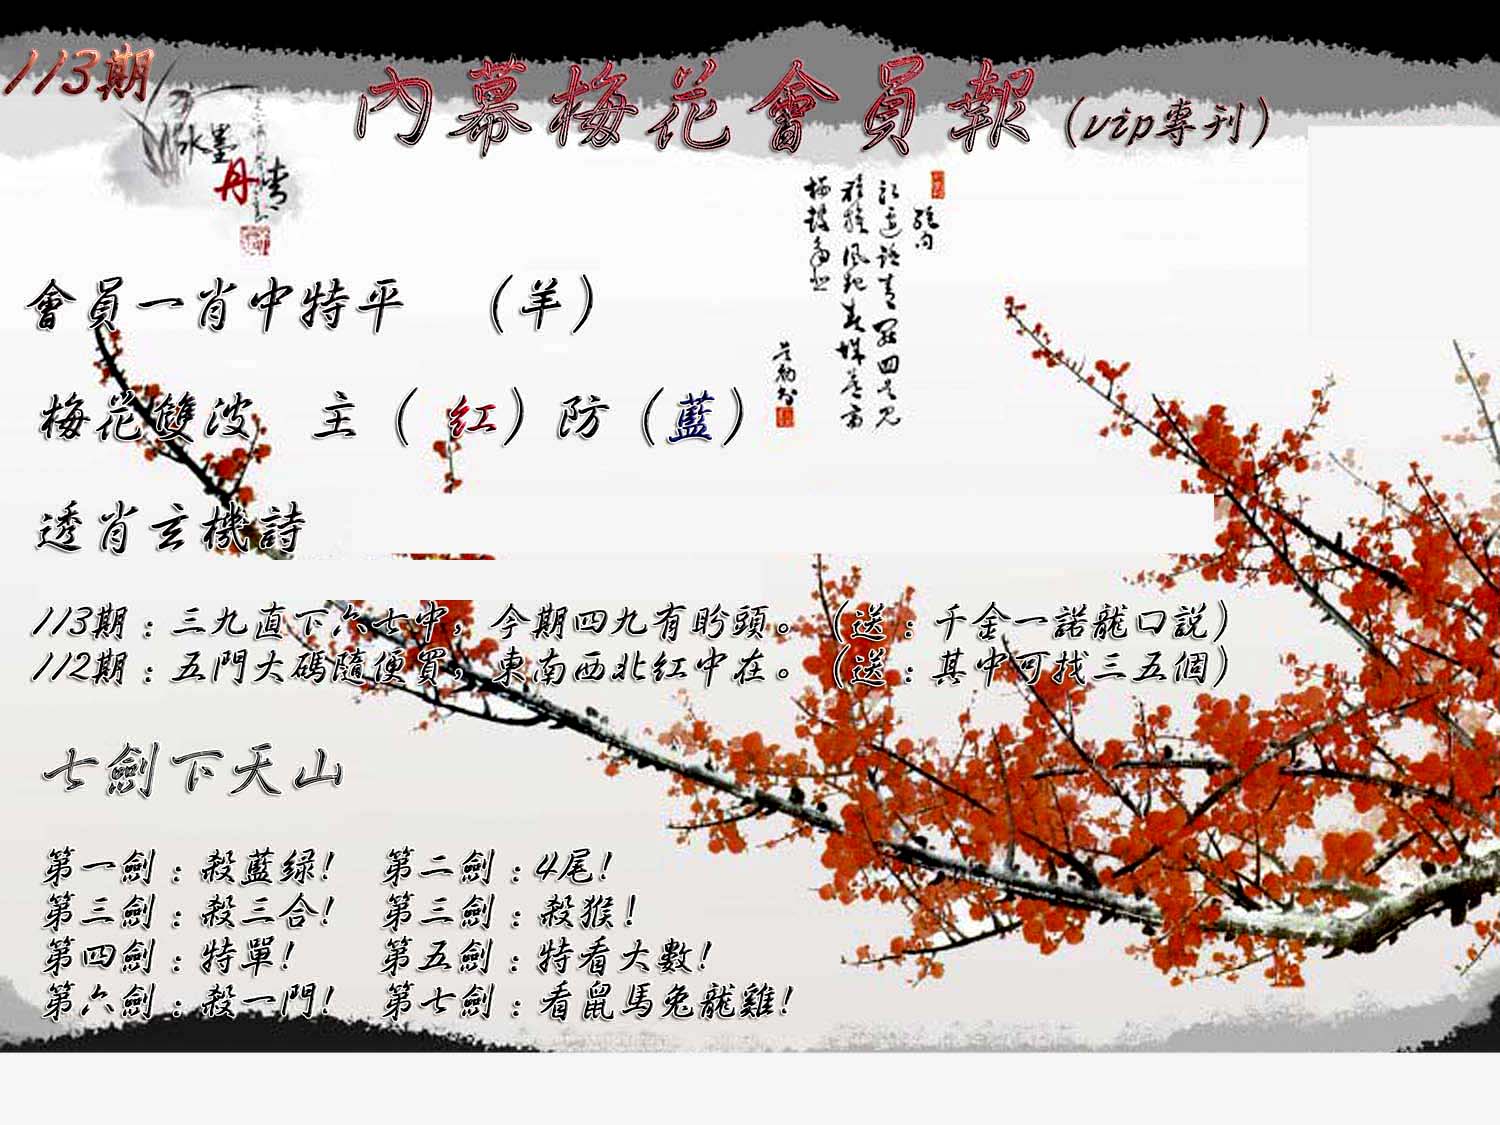 113期
內幕梅花會員報(vip專刊)
水墨
丹青
會員一肖中特平 (羊)
梅花雙波 主(紅)防(藍)
透肖玄機詩
113期:三九直下六七中,今期四九有盼頭。(送:千金一諾龍口説)
112期:五門大碼隨便買,東南西北紅中在。(送:其中可找三五個)
七劍下天山
第一劍:殺藍绿! 第二劍:4尾!
第三劍:殺三合! 第三劍:殺猴!
第四劍:特單! 第五劍:特看大數!
第六劍:殺一門! 第七劍:看鼠馬兔龍雞!